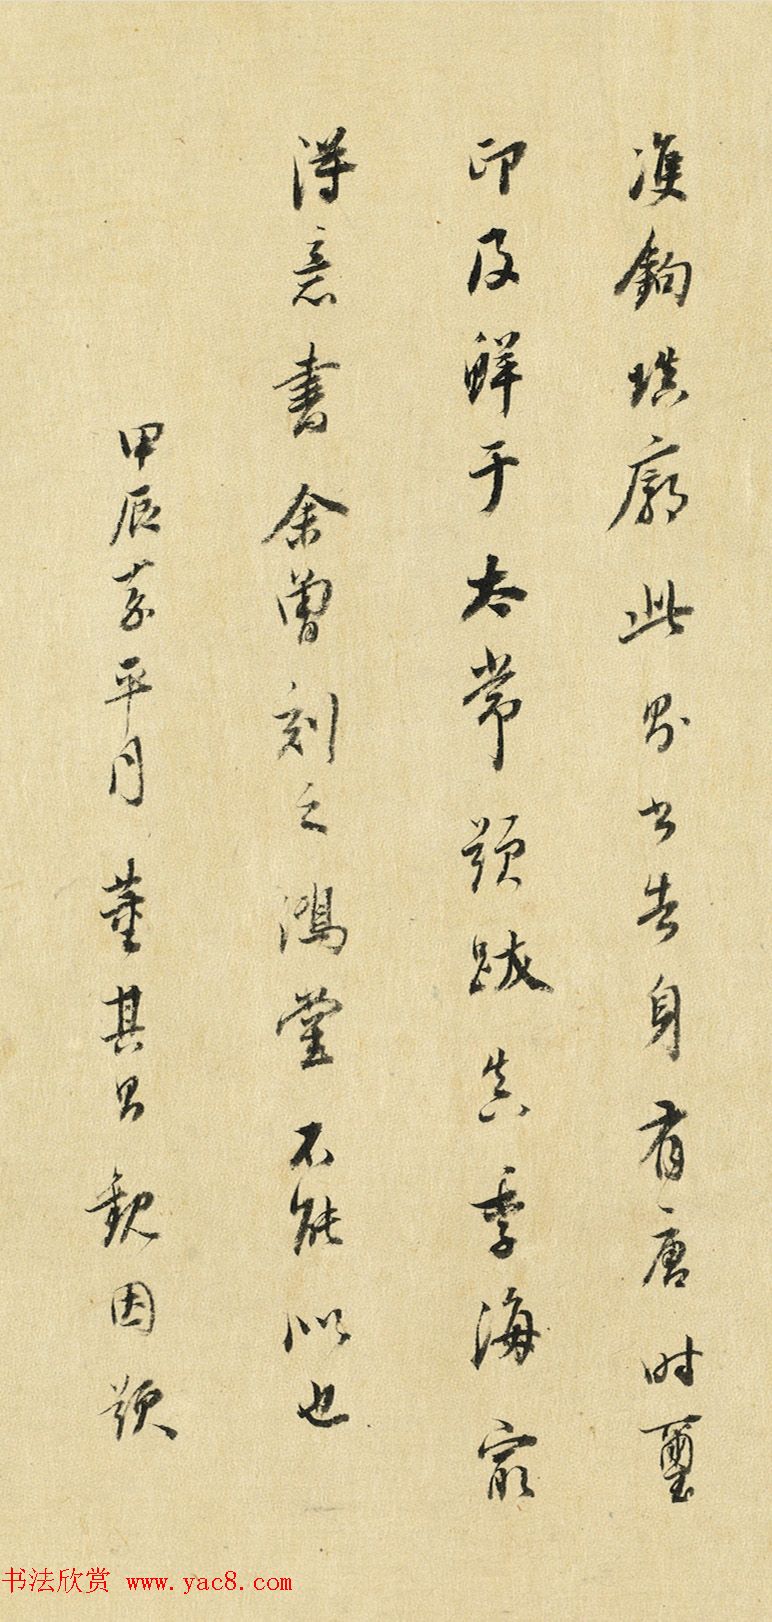 雙鉤填廓此告身有唐時璽
印及鮮于太常題跋真季海最
得意書余曾刻之鴻堂不能似也
甲辰嘉平月 董其昌觀因題
书法欣赏 www.yac8.com